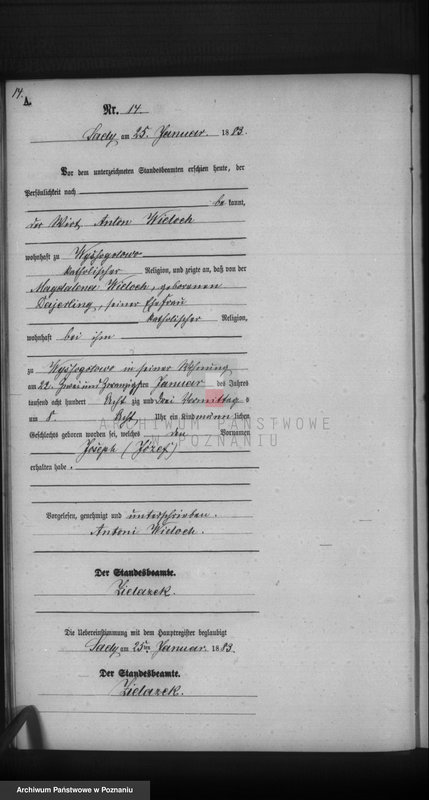 14.
A.
Nr. 14
Sady am 25. Januar 1883.
Vor dem unterzeichneten Standesbeamten erschien heute, der
Persönlichkeit nach
be kannt,
der Wirt Anton Wieloch
wohnhaft zu Wysogotowo
katholischer Religion, und zeigte an, daß von der
Magdalena Wieloch, geborenen
seiner Ehefrau
katholischer Religion,
wohnhaft bei ihm
zu Wysogotowo in seiner Wohnung
am 22. zwei und zwanzigsten Januar des Jahres
tausend acht hundert Acht zig und drei Vormittag s
um 8 Acht Uhr ein Kind männ lichen
Geschlechts geboren worden sei, welches den Vornamen
Joseph (Józef)
erhalten habe.
Vorgelesen, genehmigt und unterschrieben.
Antoni Wieloch.
Der Standesbeamte.
Zielazek.
Die Uebereinstimmung mit dem Hauptregister beglaubigt
Sady am 25ten Januar 1883.
Der Standesbeamte.
Zielazek.
ARCHIWUM PAŃSTWOWE
W POZNANIU
Archiwum Państwowe w Poznaniu